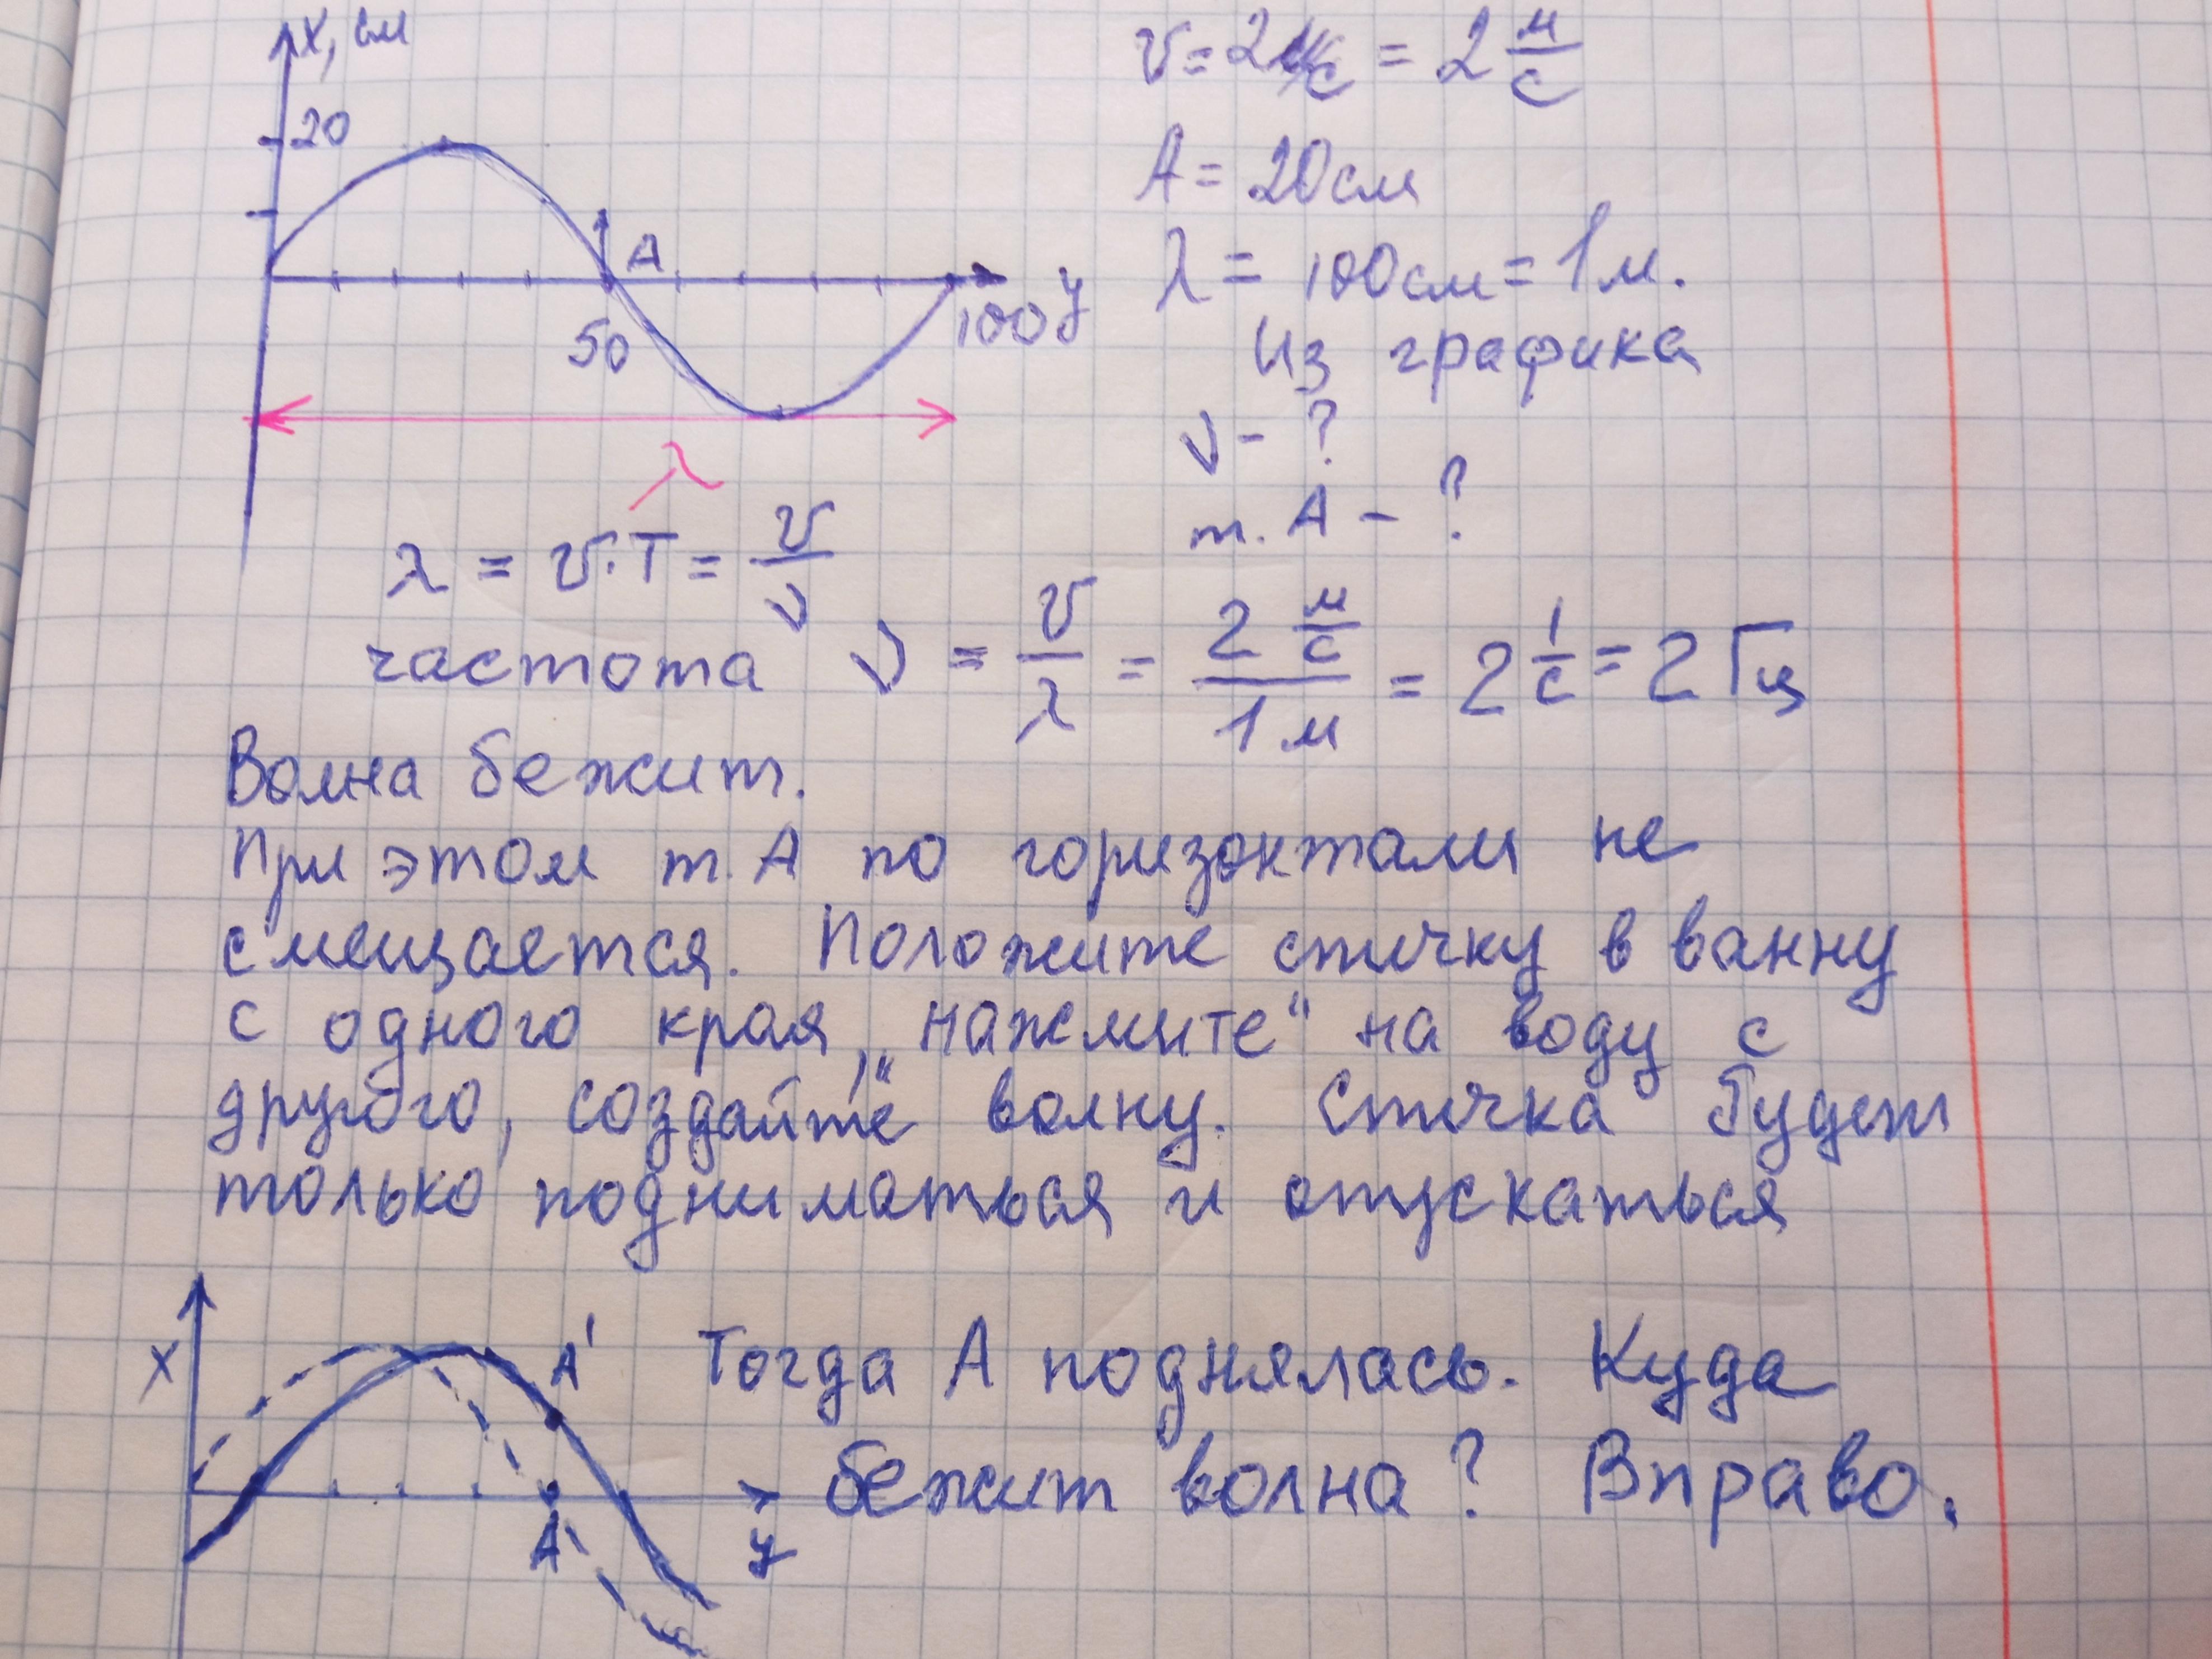 x, см
20
A
50
100 y
λ
v = 2 м/с = 2 м/с
A = 20 см
λ = 100 см = 1 м.
Из графика
ν - ?
т. А - ?
λ = v·T = v/ν
частота ν = v/λ = 2 м/с / 1 м = 2 1/с = 2 Гц
Волна бежит.
При этом т. А по горизонтали не
смещается. Положите спичку в ванну
с одного края, „нажмите“ на воду с
другого, „создайте“ волну. Спичка будет
только подниматься и опускаться
x
A'
A
y
Тогда А поднялась. Куда
бежит волна? Вправо.